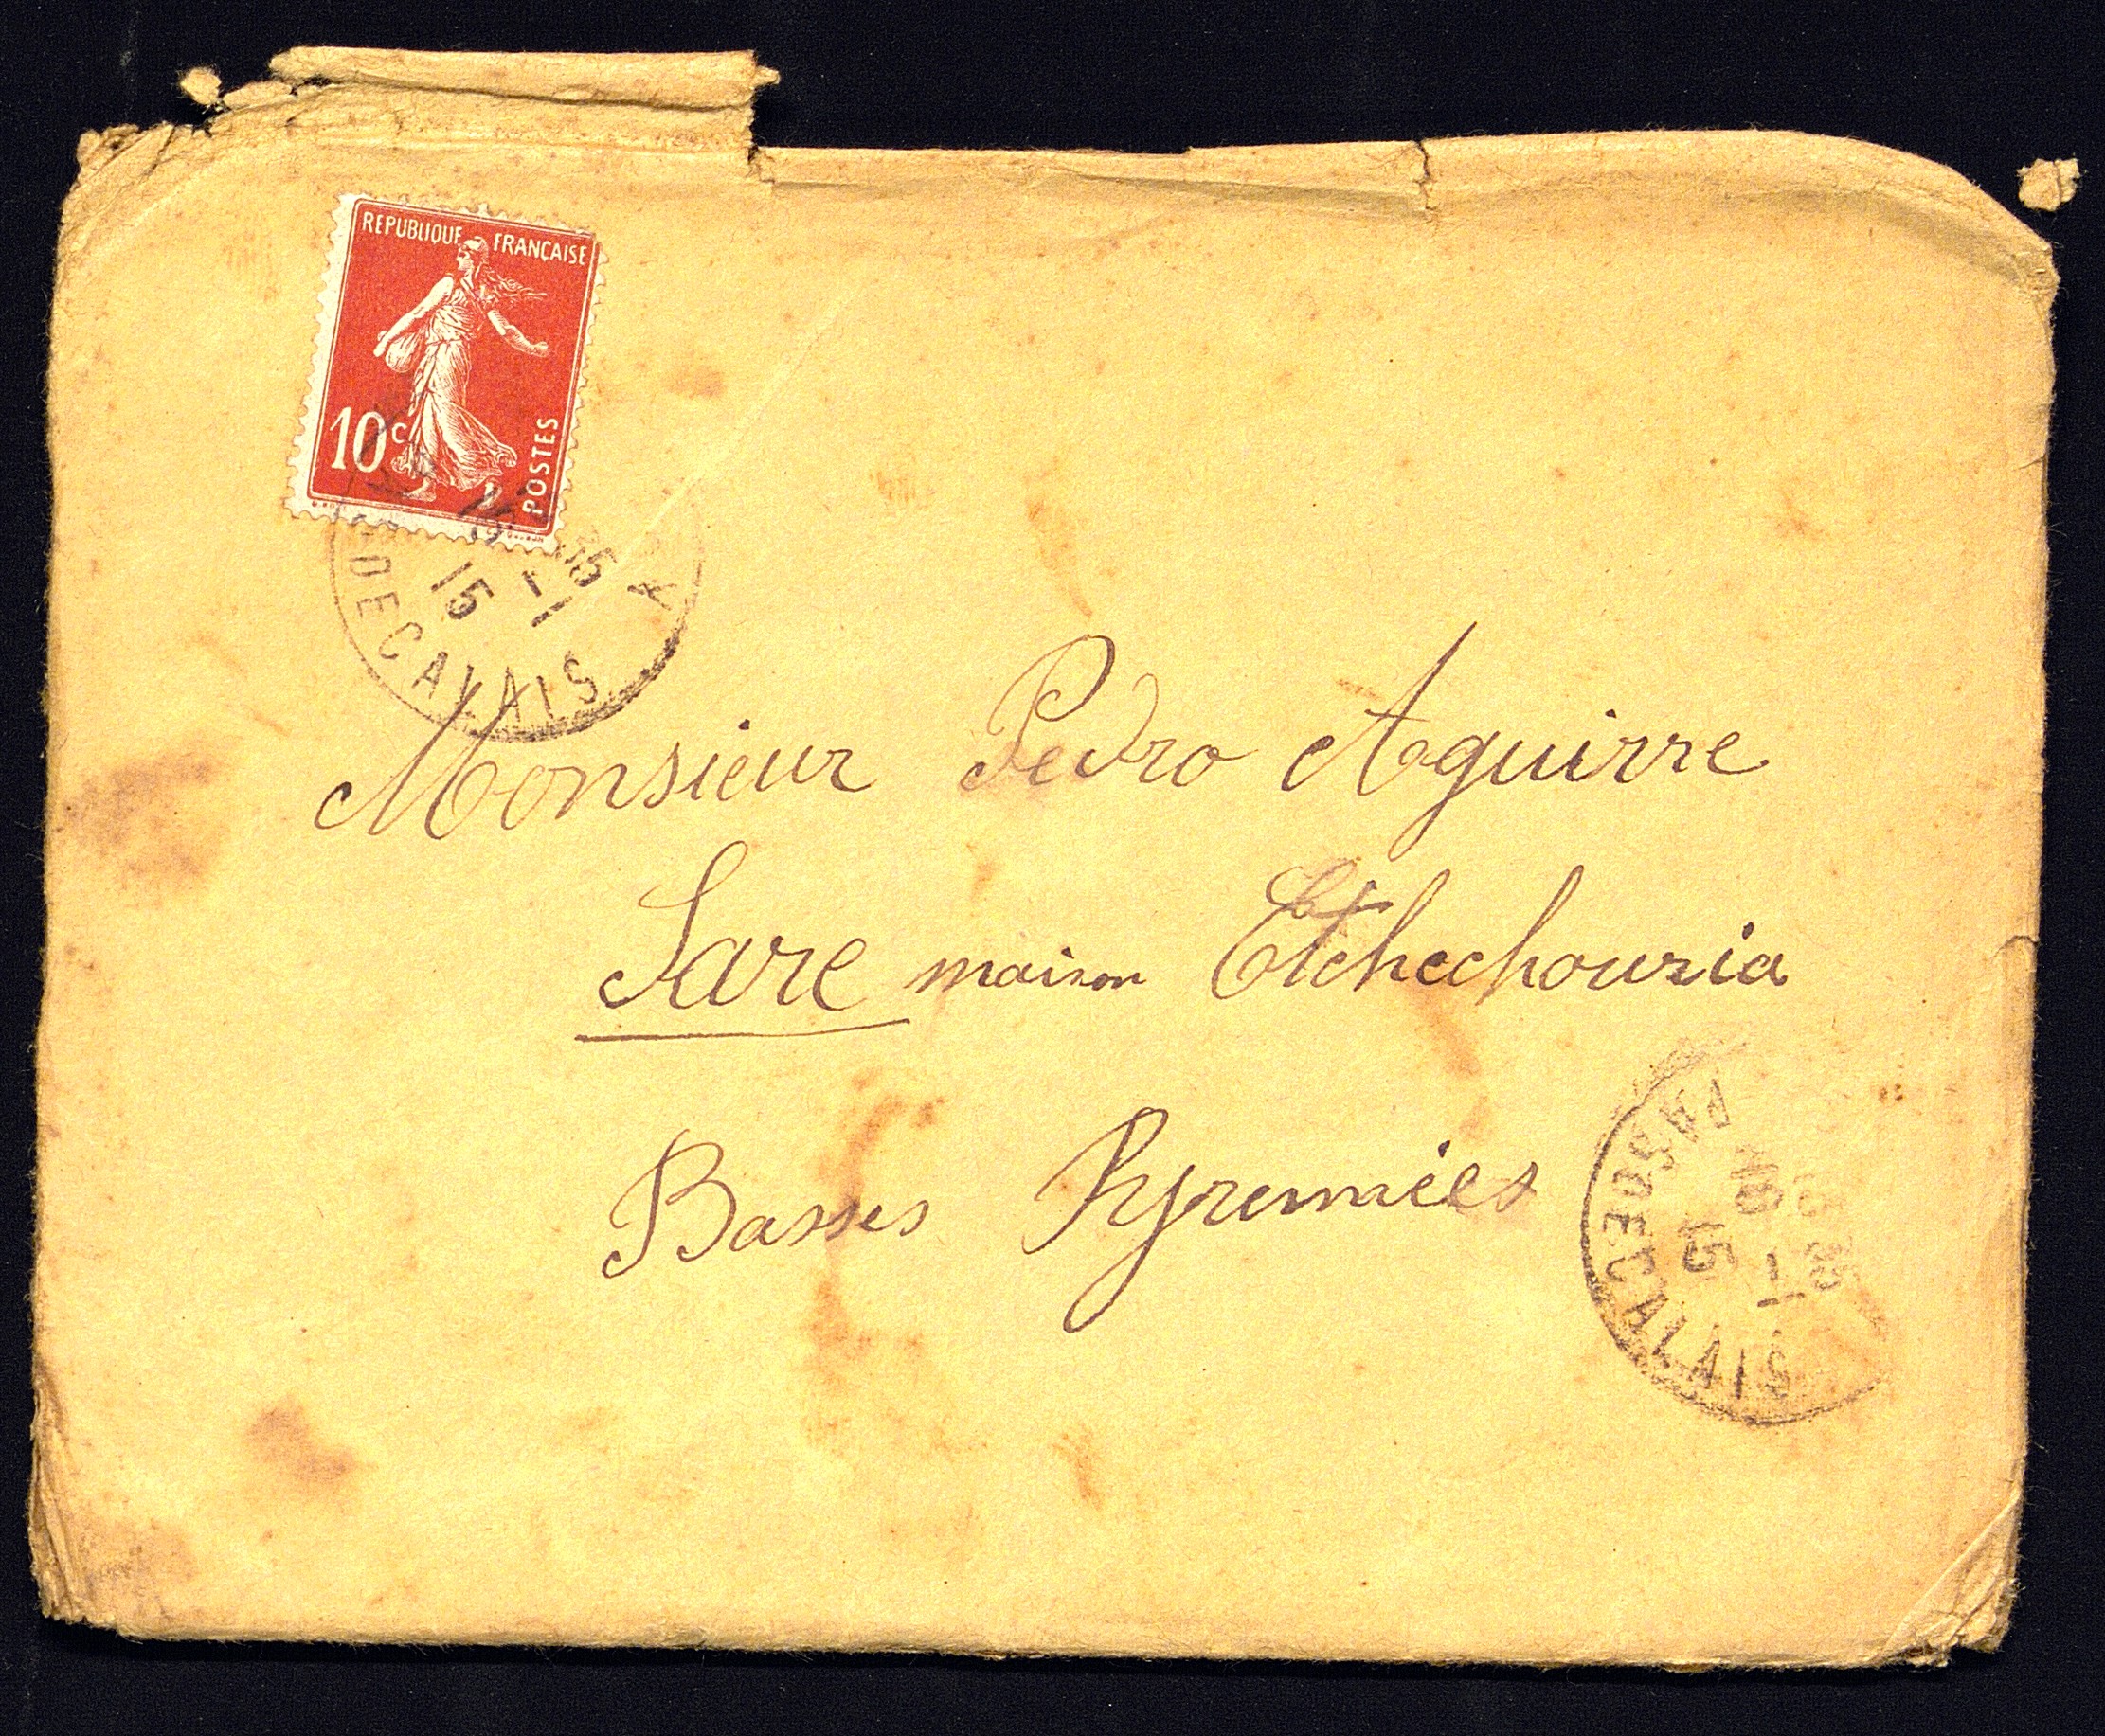 REPUBLIQUE FRANÇAISE
10 c
POSTES
DE CALAIS
15
Monsieur Pedro Aguirre
Sare maison Etchechouria
Basses Pyrennées
PAS DE CALAIS
16
15